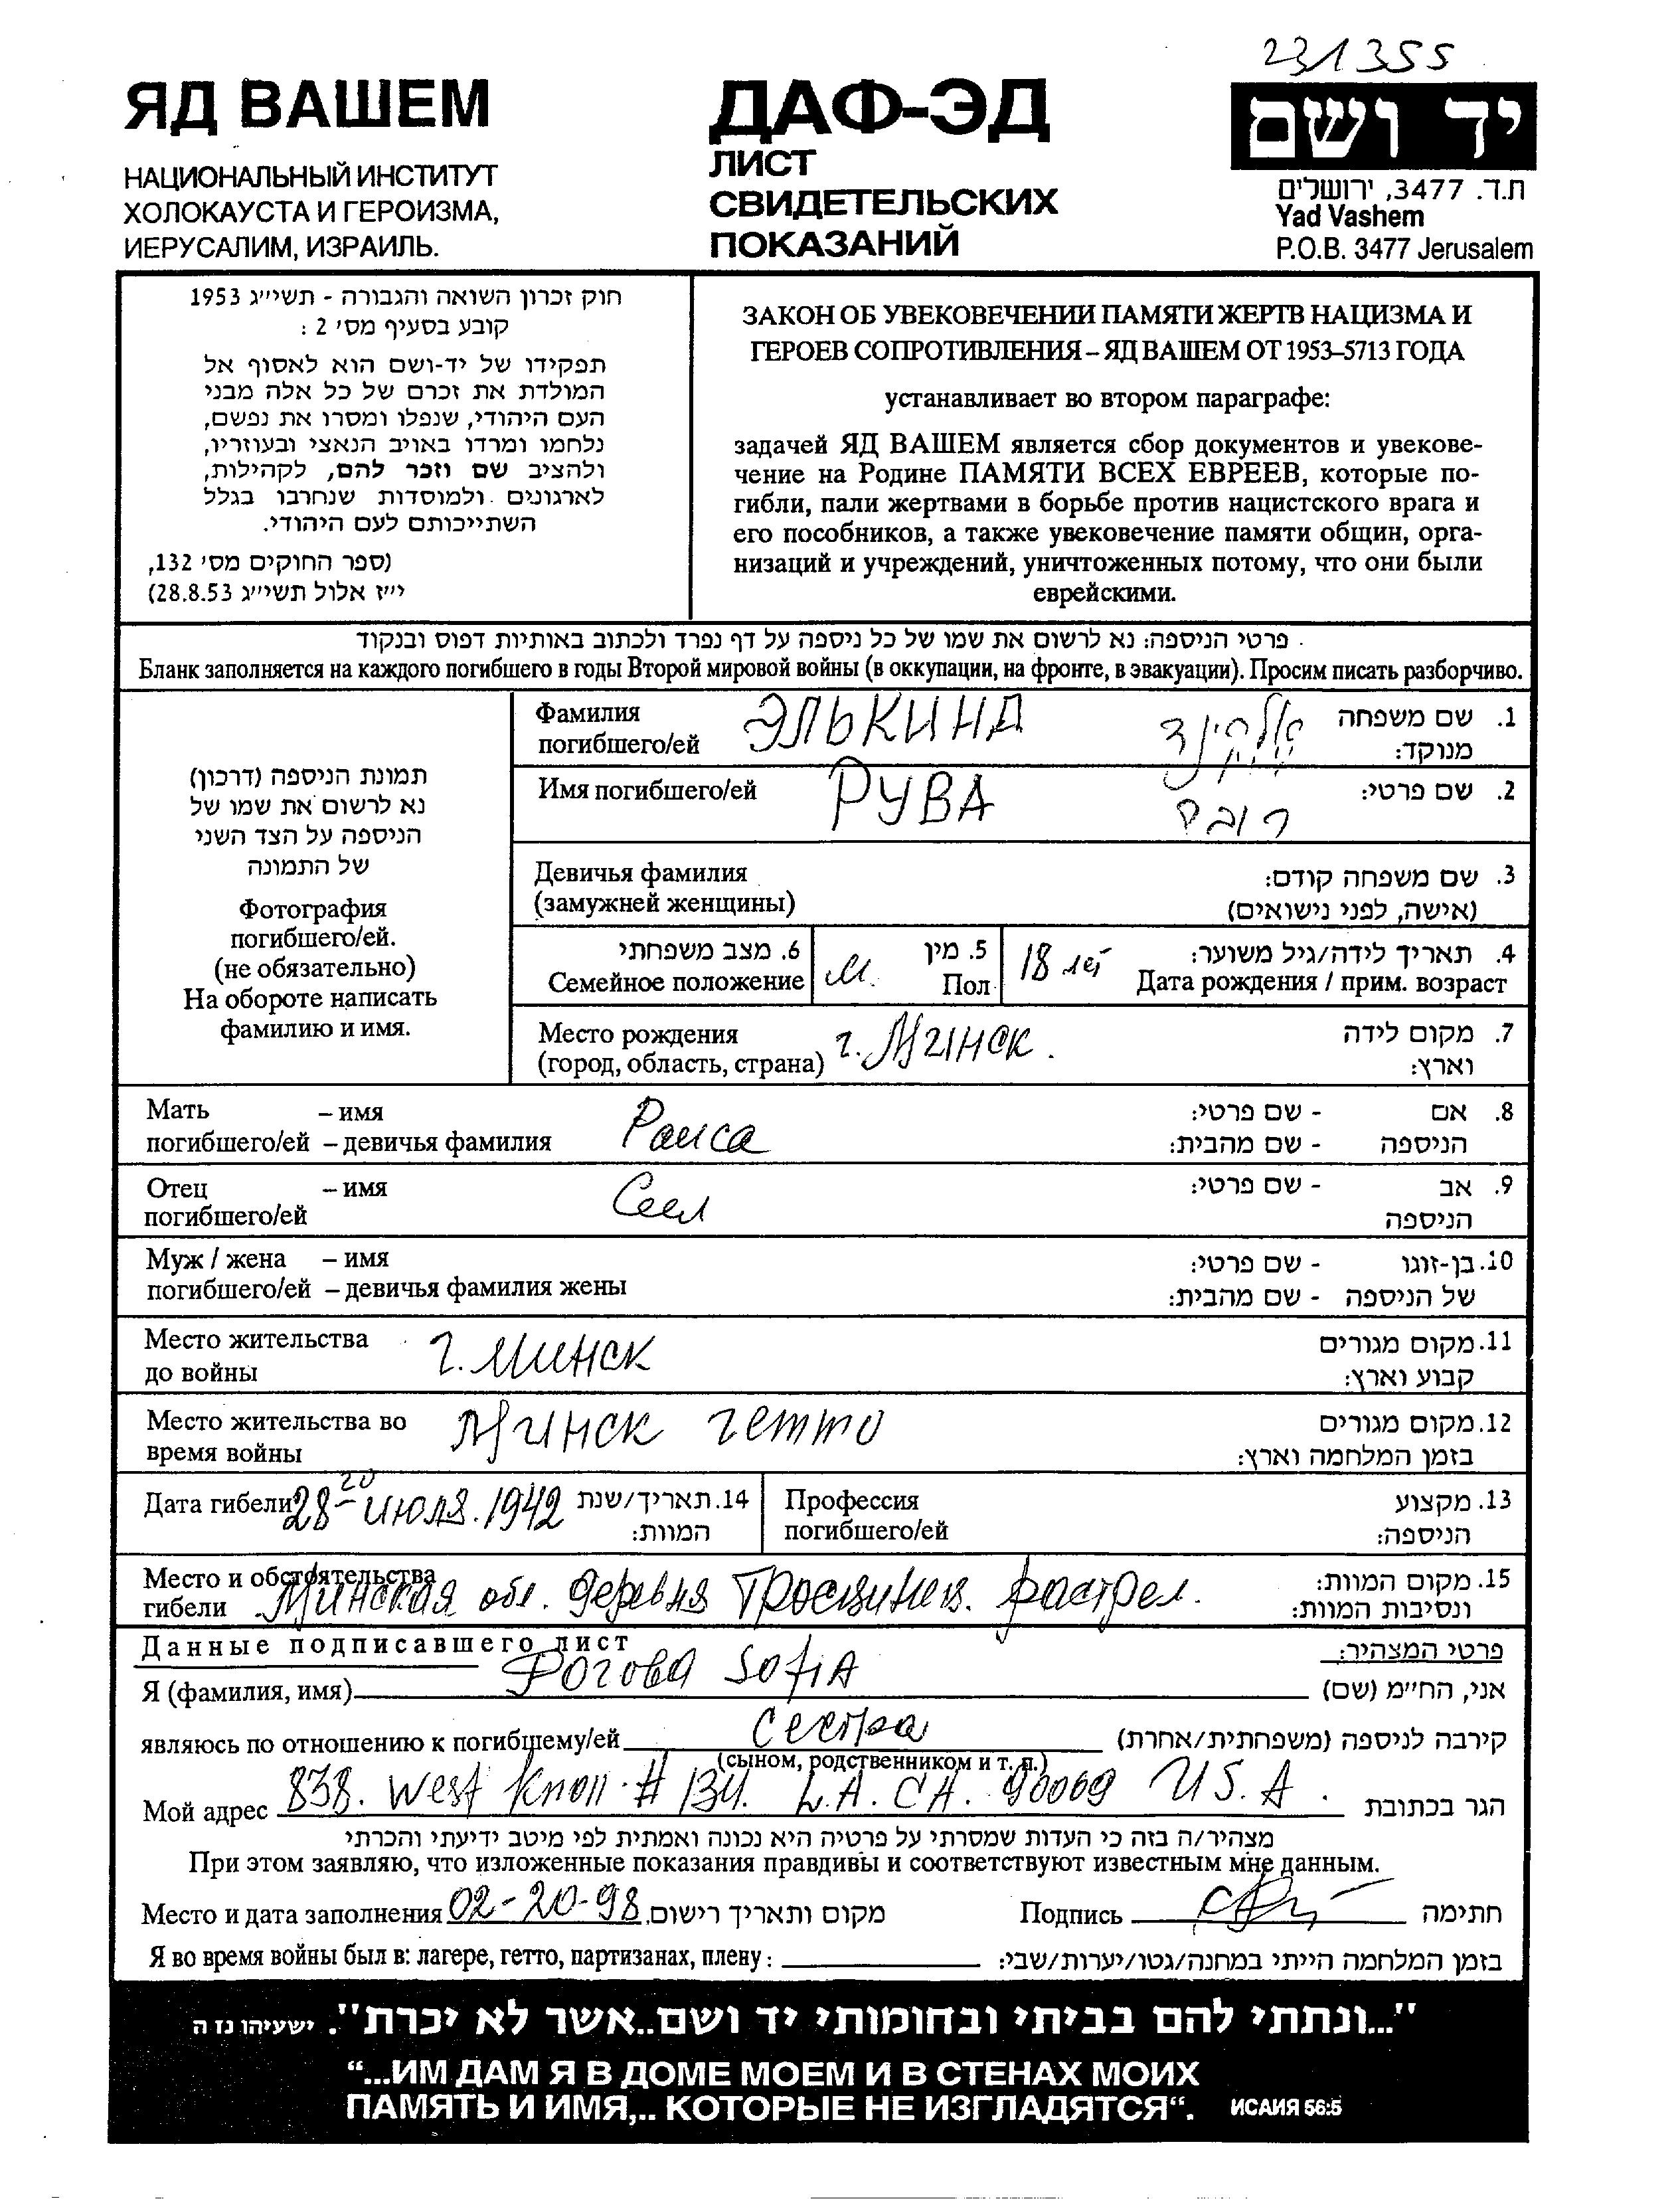 231355
ЯД ВАШЕМ
НАЦИОНАЛЬНЫЙ ИНСТИТУТ
ХОЛОКАУСТА И ГЕРОИЗМА,
ИЕРУСАЛИМ, ИЗРАИЛЬ.
ДАФ-ЭД
ЛИСТ
СВИДЕТЕЛЬСКИХ
ПОКАЗАНИЙ
יד ושם
ת.ד. 3477, ירושלים
Yad Vashem
P.O.B. 3477 Jerusalem
חוק זכרון השואה והגבורה - תשי״ג 1953
קובע בסעיף מס׳ 2 :
תפקידו של יד-ושם הוא לאסוף אל
המולדת את זכרם של כל אלה מבני
העם היהודי, שנפלו ומסרו את נפשם,
נלחמו ומרדו באויב הנאצי ובעוזריו,
ולהציב שם וזכר להם, לקהילות,
לארגונים ולמוסדות שנחרבו בגלל
השתייכותם לעם היהודי.
(ספר החוקים מס׳ 132,
י״ז אלול תשי״ג 28.8.53)
ЗАКОН ОБ УВЕКОВЕЧЕНИИ ПАМЯТИ ЖЕРТВ НАЦИЗМА И
ГЕРОЕВ СОПРОТИВЛЕНИЯ – ЯД ВАШЕМ ОТ 1953–5713 ГОДА
устанавливает во втором параграфе:
задачей ЯД ВАШЕМ является сбор документов и увекове-
чение на Родине ПАМЯТИ ВСЕХ ЕВРЕЕВ, которые по-
гибли, пали жертвами в борьбе против нацистского врага и
его пособников, а также увековечение памяти общин, орга-
низаций и учреждений, уничтоженных потому, что они были
еврейскими.
פרטי הניספה: נא לרשום את שמו של כל ניספה על דף נפרד ולכתוב באותיות דפוס ובנקוד
Бланк заполняется на каждого погибшего в годы Второй мировой войны (в оккупации, на фронте, в эвакуации). Просим писать разборчиво.
תמונת הניספה (דרכון)
נא לרשום את שמו של
הניספה על הצד השני
של התמונה
Фотография
погибшего/ей.
(не обязательно)
На обороте написать
фамилию и имя.
Фамилия ЭЛЬКИНД 1. שם משפחה
погибшего/ей אלקינד מנוקד:
Имя погибшего/ей РУВА רובה 2. שם פרטי:
Девичья фамилия 3. שם משפחה קודם:
(замужней женщины) (אישה, לפני נישואים)
6. מצב משפחתי 5. מין 4. תאריך לידה/גיל משוער:
Семейное положение м. Пол 18 лет Дата рождения / прим. возраст
Место рождения г. Минск. 7. מקום לידה
(город, область, страна) וארץ:
Мать – имя Раиса 8. אם - שם פרטי:
погибшего/ей – девичья фамилия הניספה - שם מהבית:
Отец – имя 9. אב - שם פרטי:
погибшего/ей הניספה
Муж / жена – имя 10. בן-זוגו - שם פרטי:
погибшего/ей – девичья фамилия жены של הניספה - שם מהבית:
Место жительства г. Минск 11. מקום מגורים
до войны קבוע וארץ:
Место жительства во Минск гетто 12. מקום מגורים
время войны בזמן המלחמה וארץ:
Дата гибели 28-го июля. 1942 14. תאריך/שנת המוות:
Профессия 13. מקצוע
погибшего/ей הניספה:
Место и обстоятельства 15. מקום המוות:
гибели Минская обл. деревня Тросцинец. растрел. ונסיבות המוות:
Данные подписавшего лист פרטי המצהיר:
Я (фамилия, имя) Рогова SofiA אני, החי״מ (שם)
являюсь по отношению к погибшему/ей сестра קירבה לניספה (משפחתית/אחרת)
(сыном, родственником и т. п.)
Мой адрес 838. West Knoll # 134. L.A. CA. 90069 U S. A. הגר בכתובת
מצהיר/ה בזה כי העדות שמסרתי על פרטיה היא נכונה ואמתית לפי מיטב ידיעתי והכרתי
При этом заявляю, что изложенные показания правдивы и соответствуют известным мне данным.
Место и дата заполнения 02-20-98 מקום ותאריך רישום. Подпись חתימה
Я во время войны был в: лагере, гетто, партизанах, плену: בזמן המלחמה הייתי במחנה/גטו/יערות/שבי:
"...ונתתי להם בביתי ובחומותי יד ושם..אשר לא יכרת". ישעיהו נז ה
“...ИМ ДАМ Я В ДОМЕ МОЕМ И В СТЕНАХ МОИХ
ПАМЯТЬ И ИМЯ,.. КОТОРЫЕ НЕ ИЗГЛАДЯТСЯ“. ИСАИЯ 56:5